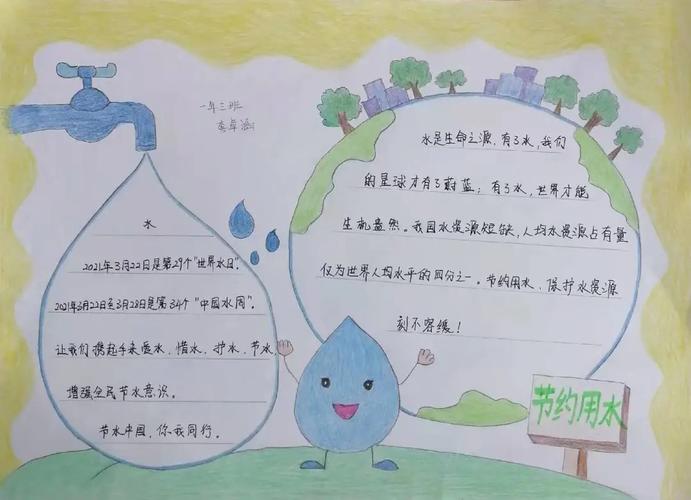 一年三班
李卓涵
水
2021年3月22日是第29个“世界水日”。
2021年3月22日至3月28日是第34个“中国水周”。
让我们携起手来爱水、惜水、护水、节水,
增强全民节水意识。
节水中国,你我同行。
水是生命之源,有了水,我们
的星球才有了蔚蓝;有了水,世界才能
生机盎然。我国水资源短缺,人均水资源占有量
仅为世界人均水平的四分之一。节约用水、保护水资源
刻不容缓!
节约用水